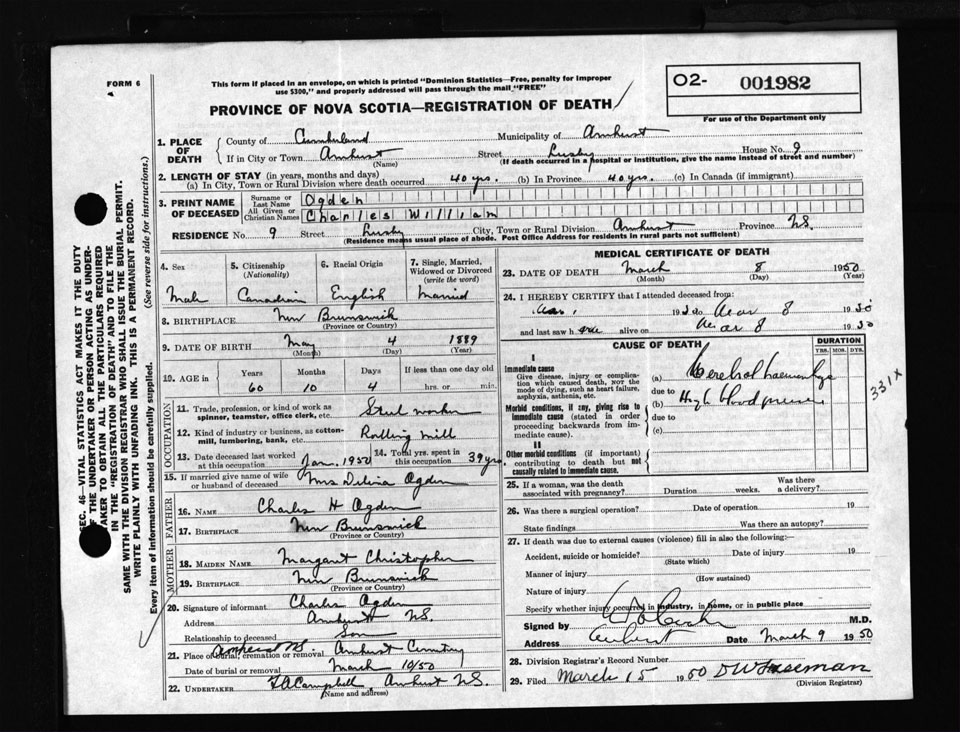 FORM 6
This form if placed in an envelope, on which is printed "Dominion Statistics—Free, penalty for improper
use $300," and properly addressed will pass through the mail "FREE"
O2- 001982
For use of the Department only
PROVINCE OF NOVA SCOTIA—REGISTRATION OF DEATH
1. PLACE OF DEATH
County of Cumberland Municipality of Amherst
If in City or Town Amherst (Name) Street Lusby House No. 9
(If death occurred in a hospital or institution, give the name instead of street and number)
2. LENGTH OF STAY (in years, months and days)
(a) In City, Town or Rural Division where death occurred 40 yrs. (b) In Province 40 yrs. (c) In Canada (if immigrant)
3. PRINT NAME OF DECEASED
Surname or Last Name Ogden
All Given or Christian Names Charles William
RESIDENCE No. 9 Street Lusby City, Town or Rural Division Amherst Province N.S.
(Residence means usual place of abode. Post Office Address for residents in rural parts not sufficient)
4. Sex Male
5. Citizenship (Nationality) Canadian
6. Racial Origin English
7. Single, Married, Widowed or Divorced (write the word) Married
8. BIRTHPLACE New Brunswick
(Province or Country)
9. DATE OF BIRTH May 4 1889
(Month) (Day) (Year)
10. AGE in Years Months Days If less than one day old
60 10 4 hrs. or min.
OCCUPATION
11. Trade, profession, or kind of work as spinner, teamster, office clerk, etc. Steel worker
12. Kind of industry or business, as cotton-mill, lumbering, bank, etc. Rolling Mill
13. Date deceased last worked at this occupation Jan. 1950
14. Total yrs. spent in this occupation 39 yrs
15. If married give name of wife or husband of deceased Mrs Ogden
FATHER
16. NAME Charles H Ogden
17. BIRTHPLACE New Brunswick
(Province or Country)
MOTHER
18. MAIDEN NAME Margaret Christopher
19. BIRTHPLACE New Brunswick
(Province or Country)
20. Signature of informant Charles Ogden
Address Amherst N.S.
Relationship to deceased Son
21. Place of burial, cremation or removal Amherst N.S. Amherst Cemetery
Date of burial or removal March 10/50
22. UNDERTAKER Campbell, Amherst N.S.
(Name and address)
MEDICAL CERTIFICATE OF DEATH
23. DATE OF DEATH March 8 1950
(Month) (Day) (Year)
24. I HEREBY CERTIFY that I attended deceased from:
19 to Mar 8 1950
and last saw h alive on Mar 8 1950
CAUSE OF DEATH
DURATION
YRS. MOS. DYS.
I
Immediate cause
Give disease, injury or complication which caused death, NOT the mode of dying, such as heart failure, asphyxia, asthenia, etc.
(a) Cerebral haemorrhage
due to
Morbid conditions, if any, giving rise to immediate cause (stated in order proceeding backwards from immediate cause).
(b) High blood pressure
due to
(c)
331X
II
Other morbid conditions (if important) contributing to death but not causally related to immediate cause.
25. If a woman, was the death associated with pregnancy? Duration weeks. Was there a delivery?
26. Was there a surgical operation? Date of operation 19
State findings Was there an autopsy?
27. If death was due to external causes (violence) fill in also the following:—
Accident, suicide or homicide? Date of injury 19
(State which)
Manner of injury
(How sustained)
Nature of injury
Specify whether injury occurred in industry, in home, or in public place
Signed by M.D.
Address Amherst Date March 9 1950
28. Division Registrar's Record Number
29. Filed March 15 1950
(Division Registrar)
SEC. 46—VITAL STATISTICS ACT MAKES IT THE DUTY
OF THE UNDERTAKER OR PERSON ACTING AS UNDERTAKER TO OBTAIN ALL THE PARTICULARS REQUIRED
IN THE "REGISTRATION OF DEATH" AND TO FILE THE
SAME WITH THE DIVISION REGISTRAR WHO SHALL ISSUE THE BURIAL PERMIT.
WRITE PLAINLY WITH UNFADING INK. THIS IS A PERMANENT RECORD.
Every item of information should be carefully supplied. (See reverse side for instructions.)